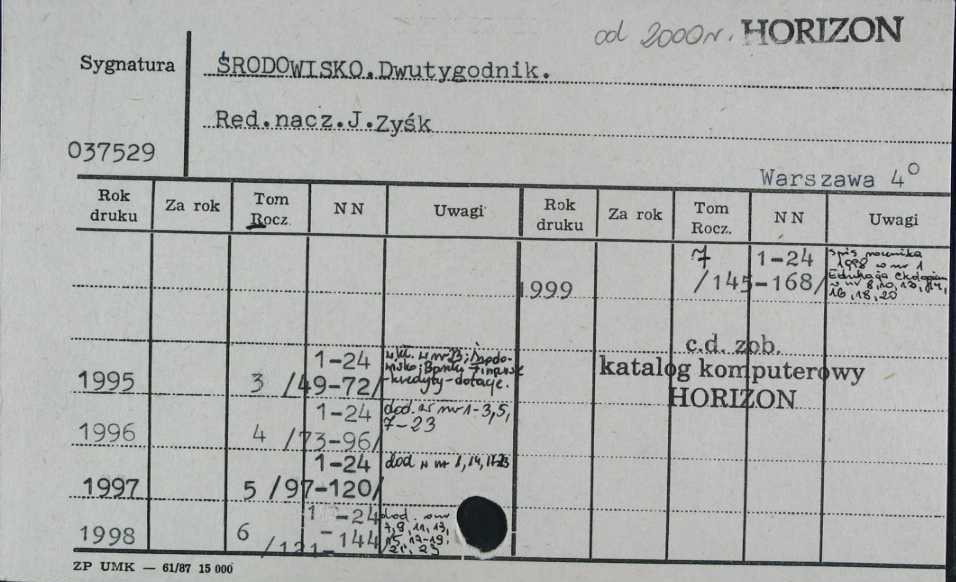 od 2000 r. HORIZON
Sygnatura
ŚRODOWISKO.Dwutygodnik.
Red.nacz.J.Zyśk
037529
Warszawa 4°
Rok druku Za rok Tom Rocz. NN Uwagi Rok druku Za rok Tom Rocz. NN Uwagi
1999 7 1-24 /145-168/ spis rocznika 1998 w nr 1
w nr 8, 10, 12, 14, 16, 18, 20
c.d. zob.
katalog komputerowy
HORIZON
1995 3 1-24 /49-72/ w nr 23; Środowisko; Banki Finanse
-kredyty-dotacje.
1996 4 1-24 /73-96/ dod. w nr 1-3, 5,
7-23
1997 5 1-24 /97-120/ dod w nr
1998 6 1-24 /121-144/ dod. w nr
7, 9, 11, 13,
15, 17-19,
21, 23
ZP UMK — 61/87 15 000